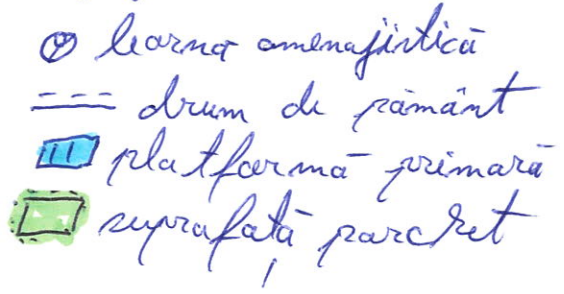 bornă amenajistică
drum de pământ
platformă primară
suprafață parchet